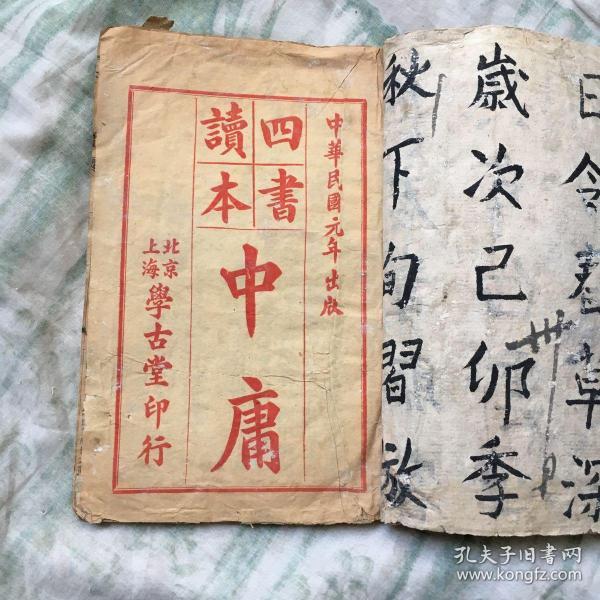 中華民國元年出版
四書
讀本
中庸
北京
上海
學古堂印行
歲次己卯季
秋下旬習放
孔夫子旧书网
www.kongfz.com